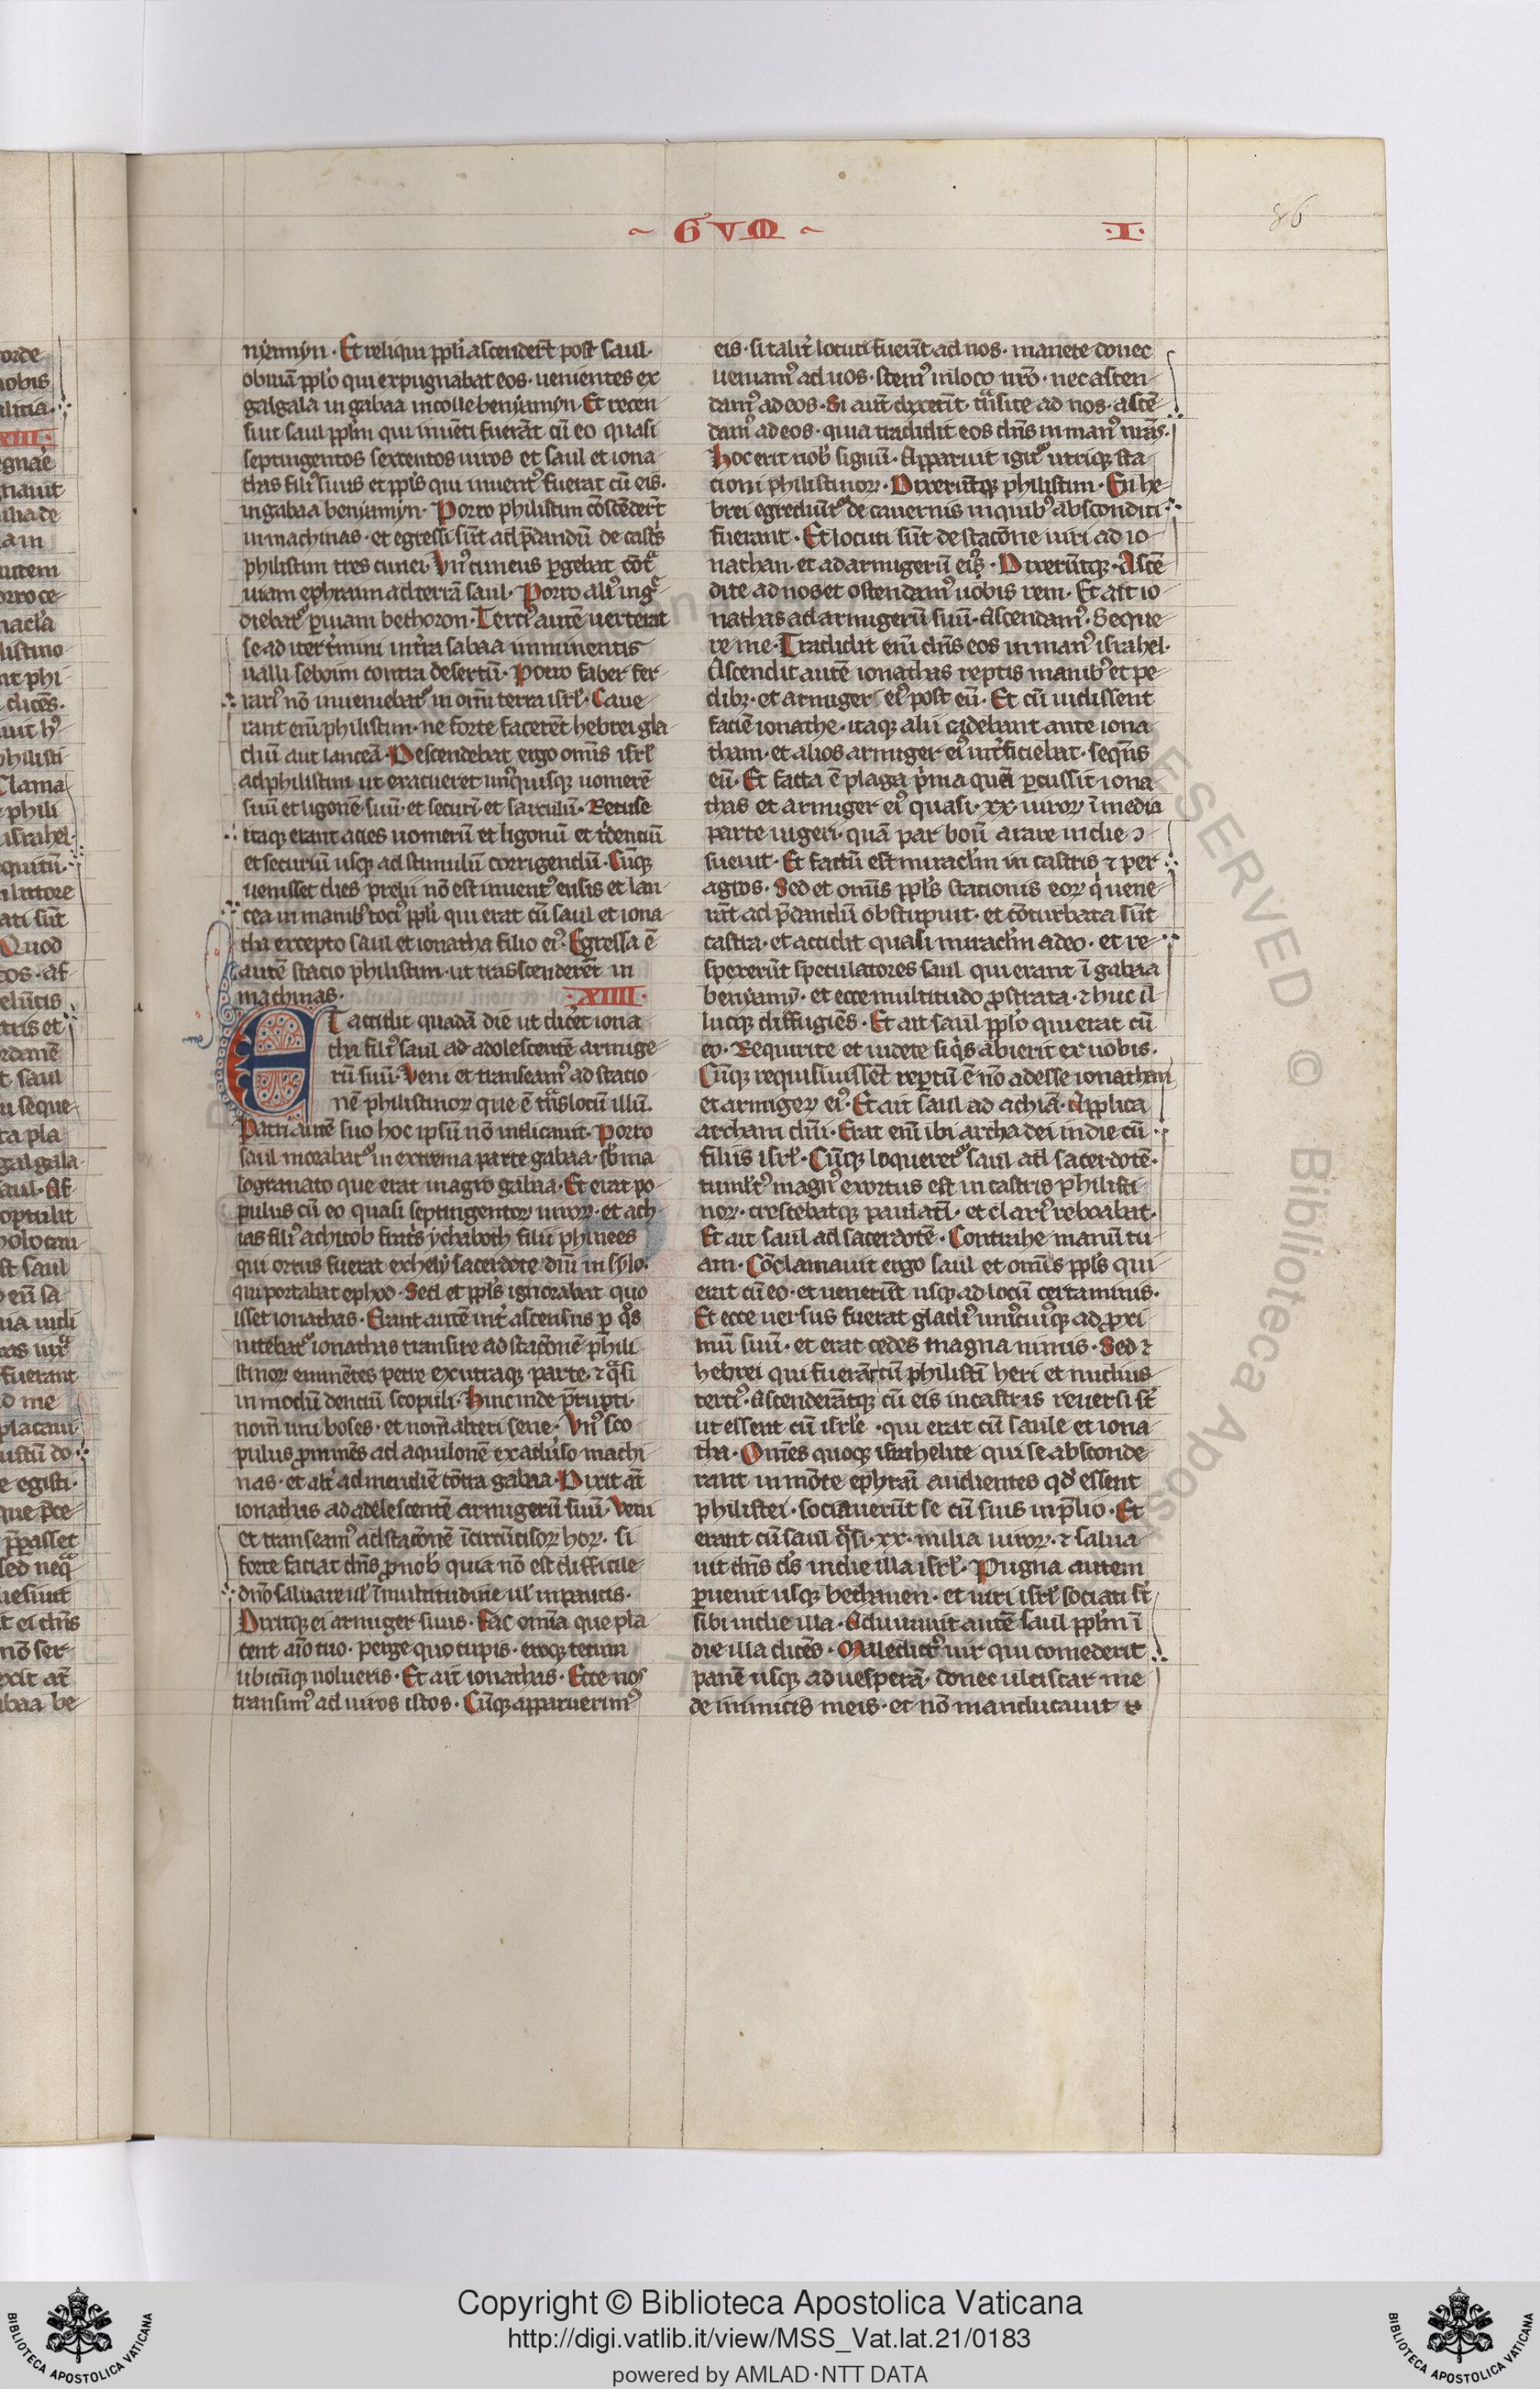 ~ GVM ~ ·I·
86
nẏamẏn · Et reliqui ppl'i ascenderūt post saul·
obuiā pplo qui expugnabat eos · uenientes ex
galgala in gabaa in colle beniamẏn · Et recen
siut saul pplm qui inuēti fuerāt cū eo quasi
septingentos sexcentos uiros et saul et iona
thas fili⁹ suus et ppls qui inuent⁹ fuerat cū eis·
in gabaa beniamẏn · Porro philistim cōscēderūt
in machinas · et egressi sūt ad p̄dandū de castis
philistim tres cunei · Vn⁹ cuneus pgebat cōt̃
uiam ephraim ad terrā saul · Porro ali⁹ ing̃
diebat² p uiam bethoron · Terci⁹ autē uerterat
se ad iter t'mini in t'ra sabaa imminentis
ualli seboim contra desertū · Porro faber fer
rari⁹ nō inueniebat² in om̄i terra isrl' · Caue
rant eni philistim · ne forte facerēt hebrei gla
diū aut lanceā · Descendebat ergo omīs isrl'
ad philistim ut exacueret un⁹quisq; uomerē
suū et ligonē suū · et securī · et sarculū · Retuse
itaq; erant acies uomerū et ligonū et t'dentiū
et securiū usq; ad stimulū corrigendū · Cūq;
uenisset dies prelii nō est inuent⁹ ensis et lan
cea in manib⁹ toci⁹ ppl'i qui erat cū saul et iona
tha excepto saul et ionatha filio ei⁹ · Egressa ē
autē stacio philistim · ut trasscenderēt in
machinas · ·XIIII·
Et accidit quadā die ut diceret iona
tha fili⁹ saul ad adolescentē armige
rū suū · Veni et transeam⁹ ad statio
nē philistinor que ē trās locū illū·
Patri autē suo hoc ipsū nō indicauit · Porro
saul morabat² in extrema parte gabaa · sb ma
logranato que erat in agro gabaa · Et erat po
pulus cū eo quasi septingentor uiror · et ach
ias fili⁹ achitob fratris ychaboth filii phinees
qui ortus fuerat ex helẏ sacerdote dn̄i in sẏlo·
qui portabat ephod · Sed et ppls ignorabat quo
isset ionathas · Erant autē int' ascensus p q̊s
nitebat² ionathas transire ad stacōnē phili
stinor eminētes petre ex utraq; parte · ⁊ q̃si
in modū dentiū scopuli · hinc inde p̄rupti·
nom̄ uni boses · et nom̄ alteri sene · Vn⁹ sco
pulus pminēs ad aquilonē ex adũso machi
nas · et alt' ad meridiē cōtra gabaa · Dixit āt
ionathas ad adelescentē armigerū suū · Veni
et transeam⁹ ad stacōnē īcircūcisor hor · si
forte faciat dn̄s p nob quia nō est difficile
dn̄o saluare ul' ī multitudine ul' in paucis·
Dixitq; ei armiger suus · Fac om̄ia que pla
cent aīo tuo · perge quo cupis · eroq; tecum
ubicūq; uolueris · Et ait ionathas · Ecce nos
transim⁹ ad uiros istos · Cūq; apparuerim⁹
eis · si talit' locuti fuerīt ad nos · manete donec
ueniam⁹ ad uos · stem⁹ in loco nr̄o · nec ascen
dam⁹ ad eos · Si aut̄ dixerīt · trāsite ad nos · ascē
dam⁹ ad eos · quia tradidit eos dn̄s in man⁹ nrās·
hoc erit nob signū · Apparuit igit² utriq; sta
cioni philistinor · Dixerūtq; philistim · En he
brei egrediunt² de cauernis in quib⁹ absconditi
fuerant · Et locuti sūt de stacōne uiri ad io
nathan · et ad armigerū ei⁹ · Dixerūtq; · Ascē
dite ad nos et ostendam⁹ uobis rem · Et ait io
nathas ad armigerū suū · Ascendam⁹ · Seque
re me · Tradidit eni dn̄s eos in man⁹ israhel·
Ascendit autē ionathas reptis manib⁹ et pe
dib; · et armiger ei⁹ post eū · Et cū uidissent
faciē ionathe · itaq; alii cadebant ante iona
tham · et alios armiger ei⁹ int'ficiebat · sequēs
eū · Et facta ē plaga p'ma quā pcussit iona
thas et armiger ei⁹ quasi · xx · uiror ī media
parte iugeri · quā par boū arare in die ↄ
sueuit · Et factū est miraclm in castris ⁊ per
agros · Sed et omīs ppls stacionis eor q̇ uene
rāt ad p̄dandū obstupuit · et cōturbata sūt
castra · et accidit quasi miraclm a deo · et re
spexerūt speculatores saul qui erant ī gabaa
beniamẏ · et ecce multitudo pstrata · ⁊ huc il
lucq; diffugiēs · Et ait saul pplo qui erat cū
eo · Requirite et uidete si q̇s abierit ex uobis·
Cūq; requisiuissēt reptū ē nō adesse ionathan
et armiger ei⁹ · Et ait saul ad achiā · Applica
archam dn̄i · Erat eni ibi archa dei in die cū
filiis isrl' · Cūq; loqueret² saul ad sacerdotē·
tumlt⁹ magn⁹ exortus est in castris philisti
nor · crescebatq; paulatī · et clari⁹ reboabat·
Et ait saul ad sacerdotē · Contrahe manū tu
am · Cōclamauit ergo saul et omīs ppls qui
erat cū eo · et uenerūt usq; ad locū certaminis·
Et ecce uersus fuerat gladi⁹ uni⁹cui⁹q; ad pxi
mū suū · et erat cedes magna nimis · Sed ⁊
hebrei qui fuerāt cū philistī heri et nudius
terci⁹ · Ascenderātq; cū eis in castris reuersi st̄
ut essent cū isrl'e · qui erat cū saule et iona
tha · Om̄es quoq; israhelite qui se absconde
rant in mōte ephraī audientes qd' essent
philistei · sociauerūt se cū suis in p̄lio · Et
erant cū saul q̃si · xx · milia uiror · ⁊ salua
uit dn̄s d's in die illa isrl' · Pugna autem
puenit usq; bethauen · et uiri isrl' sociati st̄
sibi in die illa · Adiurauit autē saul pplm ī
die illa dicēs · Maledict⁹ uir qui comederit
panē usq; ad uesperā · donec ulciscar me
de inimicis meis · et nō manducauit u
Copyright © Biblioteca Apostolica Vaticana
http://digi.vatlib.it/view/MSS_Vat.lat.21/0183
powered by AMLAD·NTT DATA
BIBLIOTECA APOSTOLICA VATICANA
BIBLIOTECA APOSTOLICA VATICANA